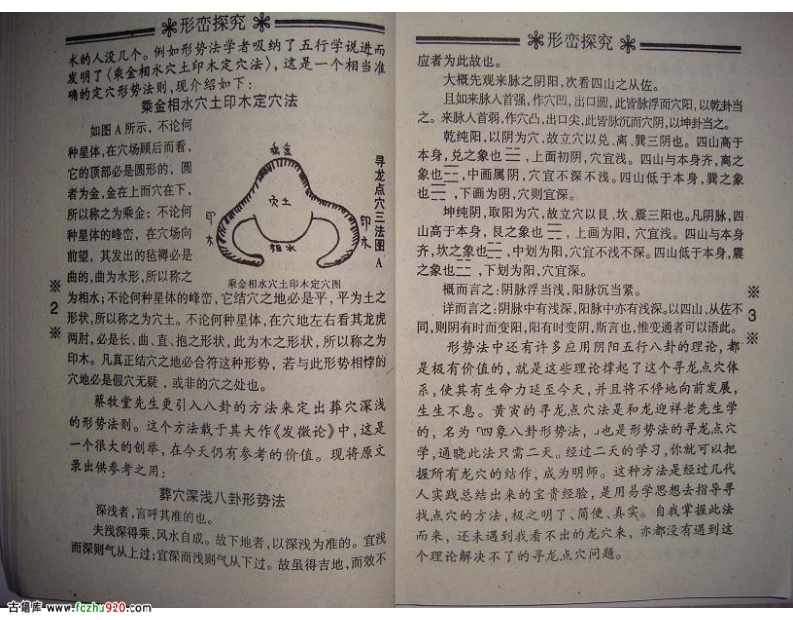 形峦探究
术的人没几个。例如形势法学者吸纳了五行学说进而
发明了〈乘金相水穴土印木定穴法〉，这是一个相当准
确的定穴形势法则，现介绍如下：
乘金相水穴土印木定穴法
如图A所示，不论何
种星体，在穴场顾后而看，
它的顶部必是圆形的，圆
者为金，金在上而穴在下，
所以称之为乘金；不论何
种星体的峰峦，在穴场向
前望，其发出的毡褥必是
曲的，曲为水形，所以称之
为相水；不论何种星体的峰峦，它结穴之地必是平，平为土之
形状，所以称之为穴土。不论何种星体，在穴地左右看其龙虎
两肘，必是长、曲、直、抱之形状，此为木之形状，所以称之为
印木。凡真正结穴之地必合符这种形势，若与此形势相悖的
穴地必是假穴无疑，或非的穴之处也。
乘金
穴土
印木
印木
相水
乘金相水穴土印木定穴图
寻龙点穴三法图A
蔡牧堂先生更引入八卦的方法来定出葬穴深浅
的形势法则。这个方法载于其大作《发微论》中，这是
一个很大的创举，在今天仍有参考的价值。现将原文
录出供参考之用：
葬穴深浅八卦形势法
深浅者，言呼其准的也。
夫浅深得乘，风水自成。故下地者，以深浅为准的。宜浅
而深则气从上过；宜深而浅则气从下过。故虽得吉地，而效不
※2※
形峦探究
应者为此故也。
大概先观来脉之阴阳，次看四山之从佐。
且如来脉入首强，作穴凹，出口圆，此皆脉浮而穴阳，以乾卦当
之。来脉入首弱，作穴凸，出口尖，此皆脉沉而穴阴，以坤卦当之。
乾纯阳，以阴为穴，故立穴以兑、离、巽三阴也。四山高于
本身，兑之象也☱，上面初阴，穴宜浅。四山与本身齐，离之
象也☲，中画属阴，穴宜不深不浅。四山低于本身，巽之象
也☴，下画为阴，穴则宜深。
坤纯阴，取阳为穴，故立穴以艮、坎、震三阳也。凡阴脉，四
山高于本身，艮之象也☶，上画为阳，穴宜浅。四山与本身
齐，坎之象也☵，中划为阳，穴宜不浅不深。四山低于本身，震
之象也☳，下划为阳，穴宜深。
概而言之：阴脉浮当浅，阳脉沉当紧。
详而言之：阴脉中有浅深，阳脉中亦有浅深。以四山、从佐不
同，则阴有时而变阳，阳有时变阴，斯言也，惟变通者可以语此。
形势法中还有许多应用阴阳五行八卦的理论，都
是极有价值的，就是这些理论撑起了这个寻龙点穴体
系，使其有生命力延至今天，并且将不停地向前发展，
生生不息。黄寅的寻龙点穴法是和龙迎祥老先生学
的，名为「四象八卦形势法，」也是形势法的寻龙点穴
学，通晓此法只需二天。经过二天的学习，你就可以把
握所有龙穴的结作，成为明师。这种方法是经过几代
人实践总结出来的宝贵经验，是用易学思想去指导寻
找点穴的方法，极之明了、简便、真实。自我掌握此法
而来，还未遇到我看不出的龙穴来，亦都没有遇到这
个理论解决不了的寻龙点穴问题。
※3※
古籍库 www.fczhu920.com